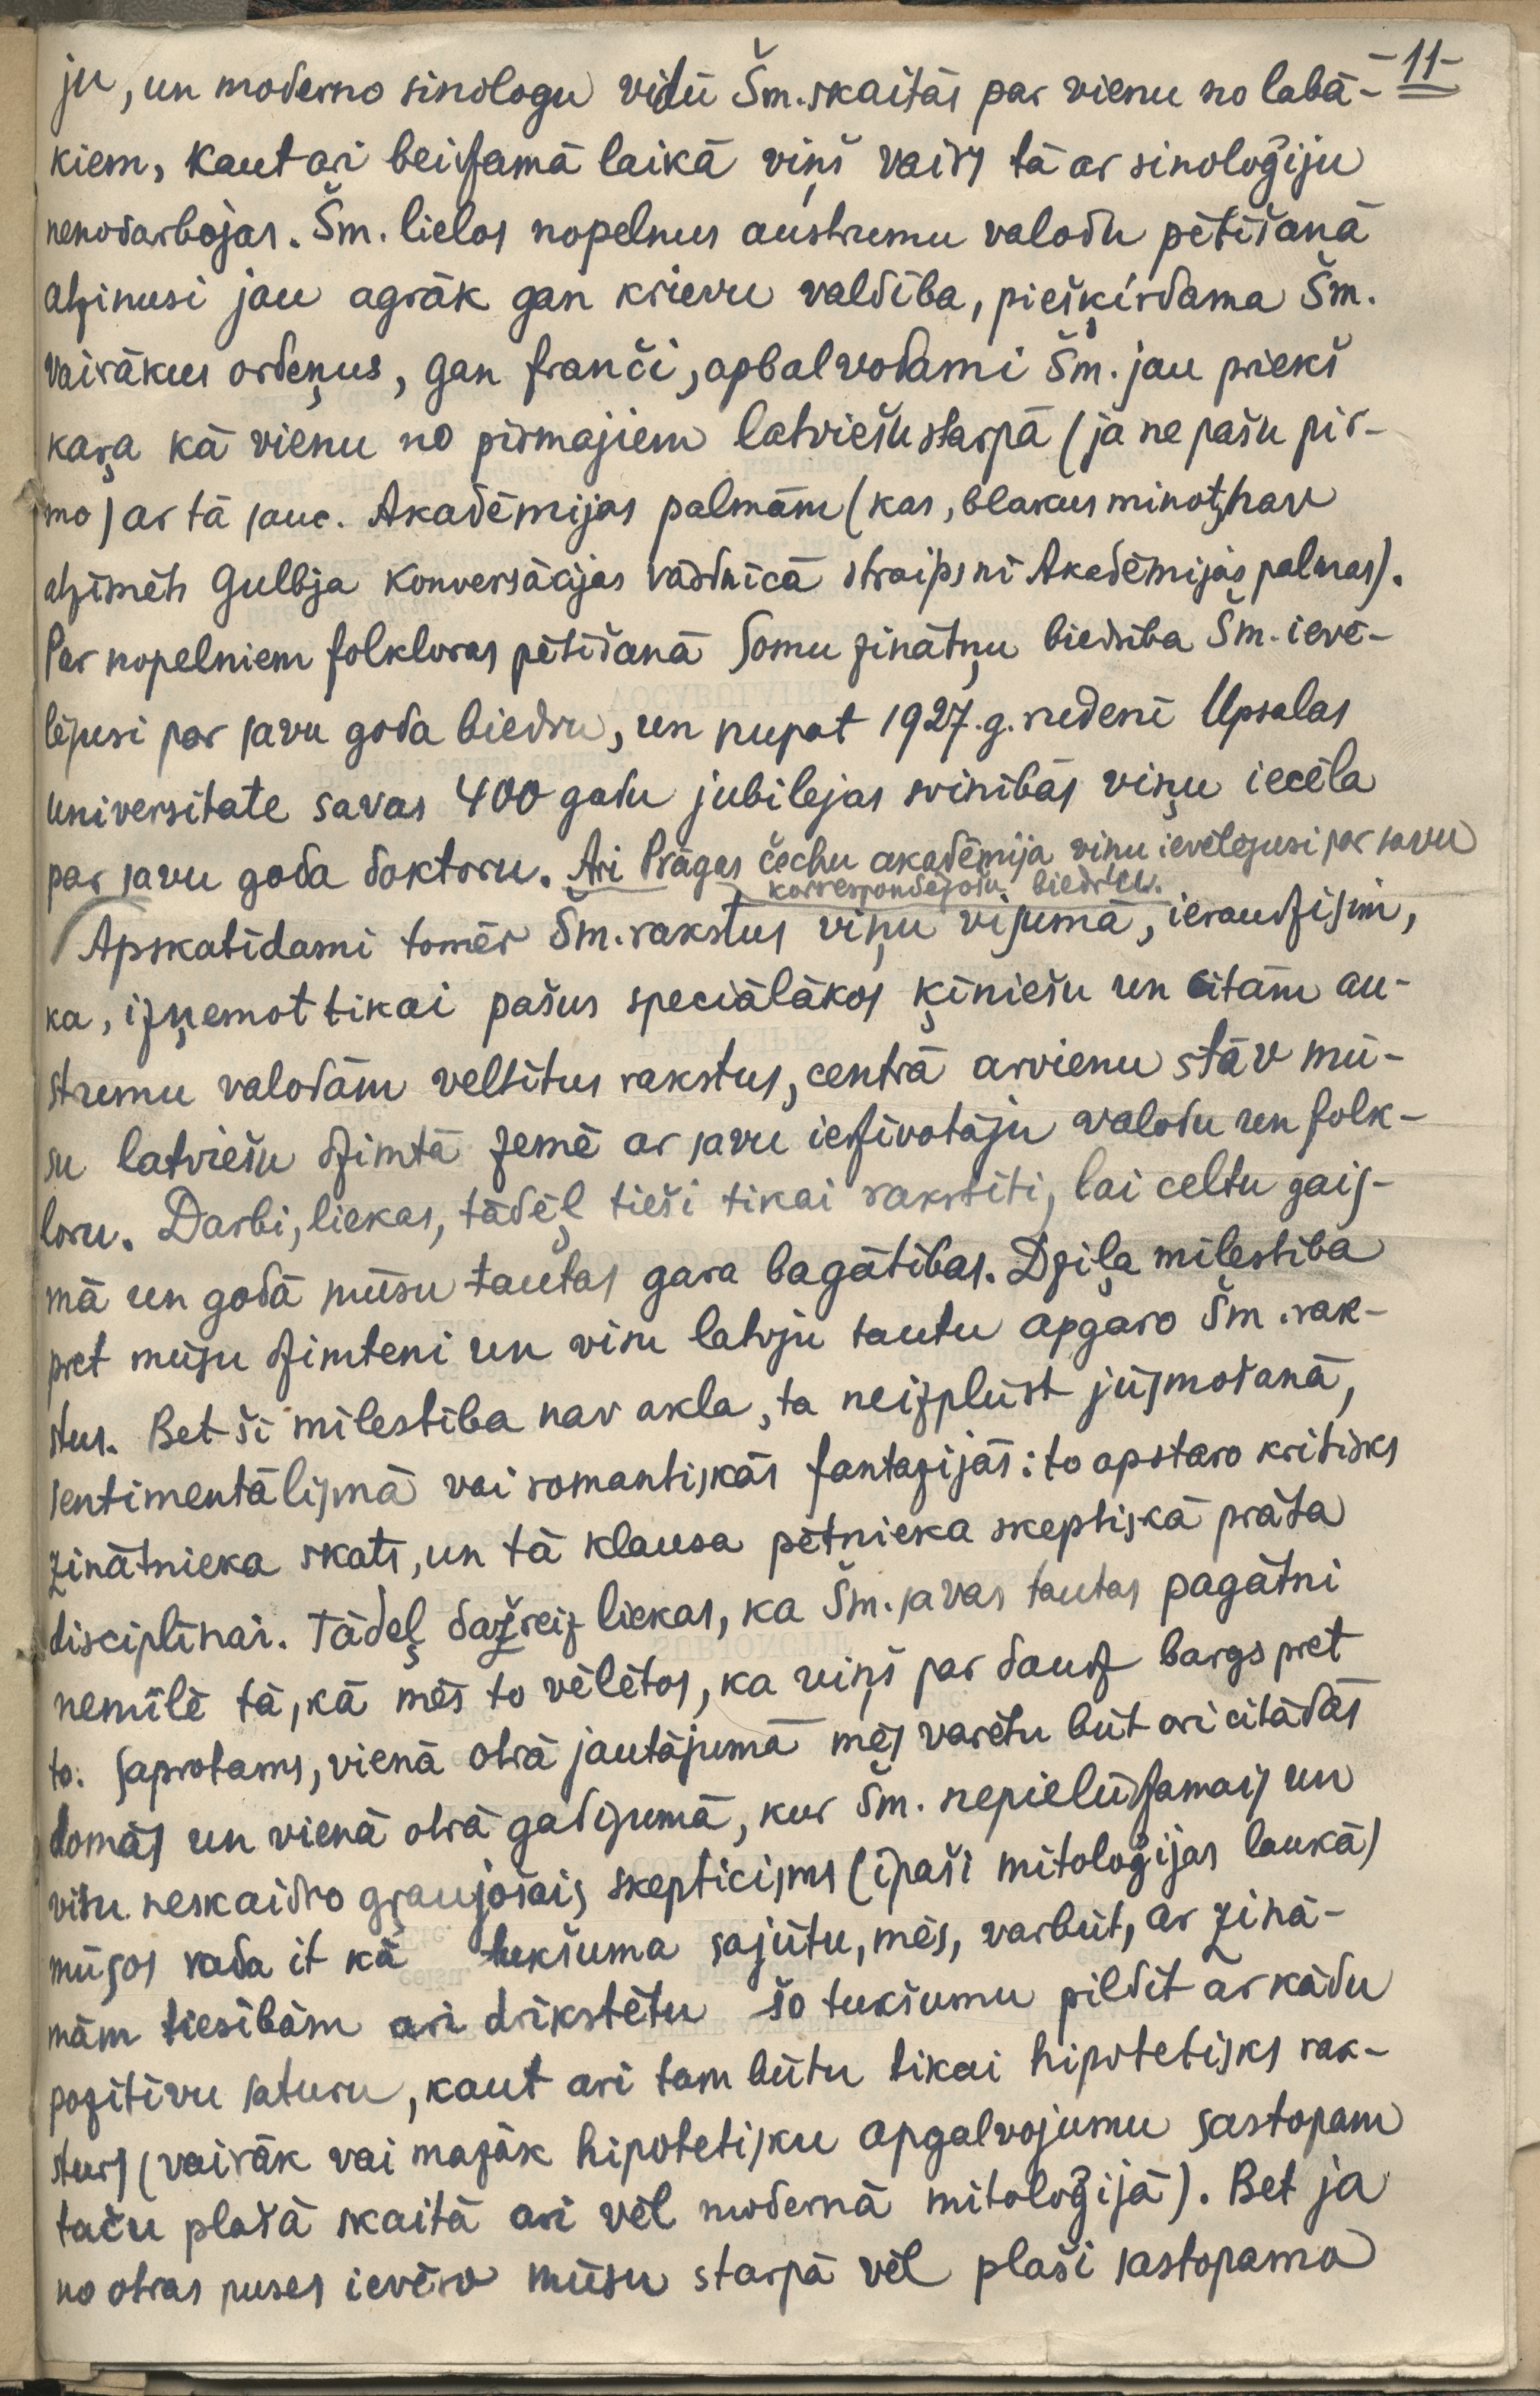 -11-
ju, un moderno sinologu vidū Šm. skaitās par vienu no labā-
kiem, kaut ari beidzamā laikā viņš vairs tā ar sinoloģiju
nenodarbojas. Šm. lielos nopelnus austrumu valodu pētīšanā
atzinusi jau agrāk gan krievu valdība, piešķirdama Šm.
vairākus ordeņus, gan franči, apbalvodami Šm. jau priekš
kaŗa kā vienu no pirmajiem latviešu starpā (ja ne pašu pir-
mo) ar tā sauc. Akadēmijas palmām (kas, blakus minot, nav
atzīmēts Gulbja Konversācijas vārdnīcā straipsnī Akadēmijas palmas).
Par nopelniem folkloras pētīšanā Somu zinātņu biedrība Šm. ievē-
lējusi par savu goda biedru, un nupat 1927. g. rudenī Upsalas
universitate savas 400 gadu jubilejas svinībās viņu iecēla
par savu goda doktoru. Ari Prāgas čechu akadēmija viņu ievēlējusi par savu
korrespondējošu biedru.
Apskatīdami tomēr Šm. rakstus viņu visumā, ieraudzīsim,
ka, izņemot tikai pašus speciālākos ķīniešu un citām au-
strumu valodām veltītus rakstus, centrā arvienu stāv mū-
su latviešu dzimtā zeme ar savu iedzīvotāju valodu un folk-
loru. Darbi, liekas, tādēļ tieši tikai rakstīti, lai celtu gais-
mā un godā mūsu tautas gara bagātības. Dziļa mīlestība
pret mūsu dzimteni un visu latvju tautu apgaro Šm. rak-
stus. Bet šī mīlestība nav akla, ta neizplūst jūsmošanā,
sentimentālismā vai romantiskās fantazijās: to apstaro kritisks
zinātnieka skats, un tā klausa pētnieka skeptiskā prāta
disciplīnai. Tādeļ dažreiz liekas, ka Šm. savas tautas pagātni
nemīlē tā, kā mēs to vēlētos, ka viņš par daudz bargs pret
to. Saprotams, vienā otrā jautājumā mēs varētu būt ari citādās
domās un vienā otrā gadījumā, kur Šm. nepielūdzamais un
visu neskaidro graujošais skepticisms (īpaši mitoloģijas laukā)
mūsos rada it kā tukšuma sajūtu, mēs, varbūt, ar zinā-
mām tiesībām ari drīkstētu šo tukšumu pildīt ar kādu
pozitīvu saturu, kaut ari tam būtu tikai hipotetisks rak-
sturs (vairāk vai mazāk hipotetisku apgalvojumu sastopam
taču plašā skaitā ari vēl modernā mitoloģijā). Bet ja
no otras puses ievēro mūsu starpā vēl plaši sastopamo